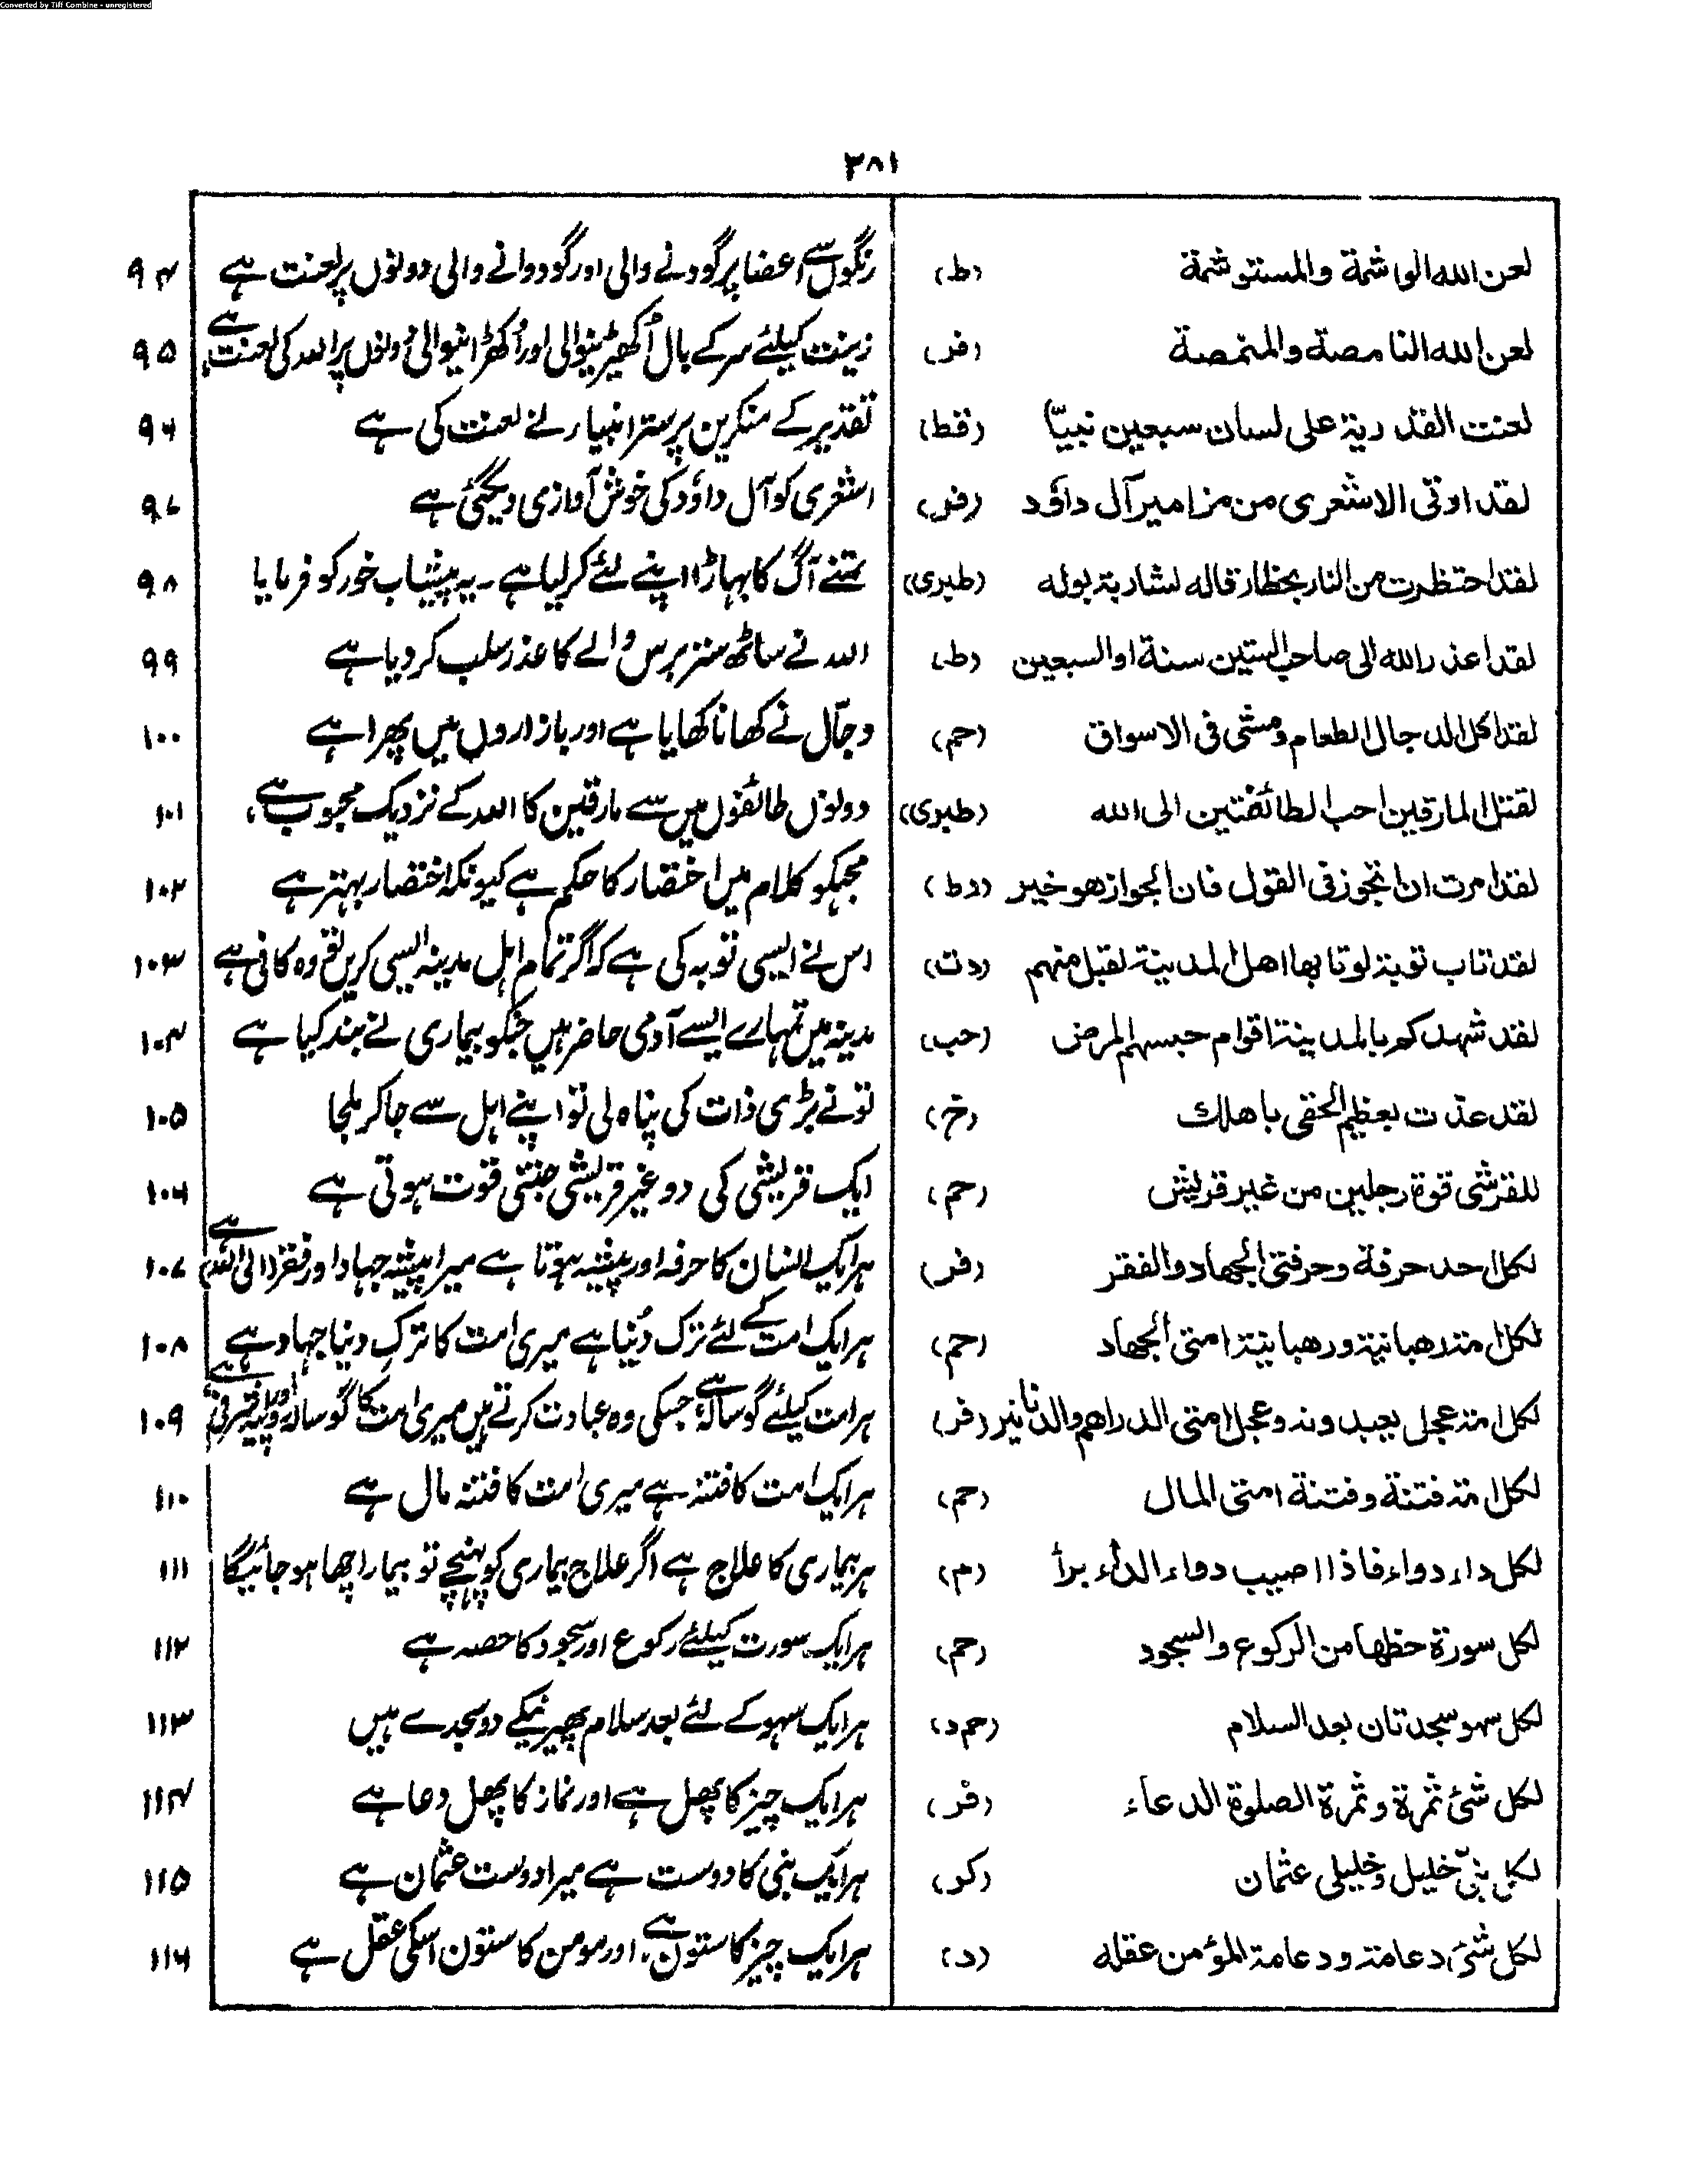 Converted by Tiff Combine - unregistered
۲۸۱
لعن الله الواشمة والمستوشمة (ط) رنگوں سے اعضا پر گودنے والی اور گودوانے والی دونوں پر لعنت ہے ۹۴
لعن الله النامصة والمنمصة (فر) زینت کیلئے سر کے بال اُکھیڑنیوالی اور اُکھڑانیوالی دونوں پر اللہ کی لعنت ہے ۹۵
لعنت القدرية على لسان سبعين نبيّا (قط) تقدیر کے منکرین پر ستر انبیاء نے لعنت کی ہے ۹۶
لقد اوتى الاشعرى من مزامير آل داؤد (فر) اشعری کو آل داؤد کی خوش آوازی دیگئی ہے ۹۷
لقد احتظرت من النار بحظار قاله لشاربة بوله (طبری) تمنے آگ کا پہاڑا اپنے لئے کر لیا ہے ۔ یہ پیشاب خور کو فرمایا ۹۸
لقد اعذر الله الى صاحب الستين سنة او السبعين (ط) اللہ نے ساٹھ ستر برس والے کا عذر سلب کر دیا ہے ۹۹
لقد اكل الدجال الطعام ومشى فى الاسواق (حم) دجّال نے کھانا کھایا ہے اور بازاروں میں پھرا ہے ۱۰۰
لقتل المارقين احب الطائفتين الى الله (طبری) دونوں طائفوں میں سے مارقین کا اللہ کے نزدیک محبوب ہے، ۱۰۱
لقد امرت ان اتجوز فى القول فان الجواز هو خير (دط) مجھکو کلام میں اختصار کا حکم ہے کیونکہ اختصار بہتر ہے ۱۰۲
لقد تاب توبة لو تابها اهل المدينة لقبل منهم (دت) اس نے ایسی توبہ کی ہے کہ اگر تمام اہل مدینہ ایسی کریں تو وہ کافی ہے ۱۰۳
لقد شهدكم بالمدينة اقوام حبسهم المرض (حب) مدینہ میں تمہارے ایسے آدمی حاضر ہیں جنکو بیماری نے بند کیا ہے ۱۰۴
لقد عذت بعظيم الحقى باهلك (خ) تو نے بڑی ذات کی پناہ لی تو اپنے اہل سے جا کر ملجا ۱۰۵
للقرشى قوة رجلين من غير قريش (حم) ایک قریشی کی دو غیر قریشی جتنی قوت ہوتی ہے ۱۰۶
لكل احد حرفة وحرفتى الجهاد والفقر (فر) ہر ایک انسان کا حرفہ اور پیشہ ہوتا ہے میرا پیشہ جہاد اور فقر (الی اللہ) ہے ۱۰۷
لكل امة رهبانية ورهبانية امتى الجهاد (حم) ہر ایک امت کے لئے ترک دُنیا ہے میری امت کا ترک دنیا جہاد ہے ۱۰۸
لكل امة عجل يعبدونه وعجل امتى الدراهم والدنانير (فر) ہر امت کیلئے گوسالہ ہے جسکی وہ عبادت کرتے ہیں میری امت کا گوسالہ روپیہ ۱۰۹
لكل امة فتنة وفتنة امتى المال (حم) ہر ایک امت کا فتنہ ہے میری امت کا فتنہ مال ہے ۱۱۰
لكل داء دواء فاذا اصيب دواء الداء برأ (م) ہر بیماری کا علاج ہے اگر علاج بیماری کو پہنچے تو بیمار اچھا ہو جائیگا ۱۱۱
لكل سورة حظها من الركوع والسجود (حم) ہر ایک سورت کیلئے رکوع اور سجود کا حصہ ہے ۱۱۲
لكل سهو سجدتان بعد السلام (حم د) ہر ایک سہو کے لئے بعد سلام پھیرنیکے دو سجدے ہیں ۱۱۳
لكل شئ ثمرة وثمرة الصلوة الدعاء (فر) ہر ایک چیز کا پھل ہے اور نماز کا پھل دعا ہے ۱۱۴
لكل نبىّ خليل وخليلى عثمان (كر) ہر ایک نبی کا دوست ہے میرا دوست عثمان ہے ۱۱۵
لكل شئ دعامة ودعامة المؤمن عقله (د) ہر ایک چیز کا ستون ہے اور مومن کا ستون اسکی عقل ہے ۱۱۶